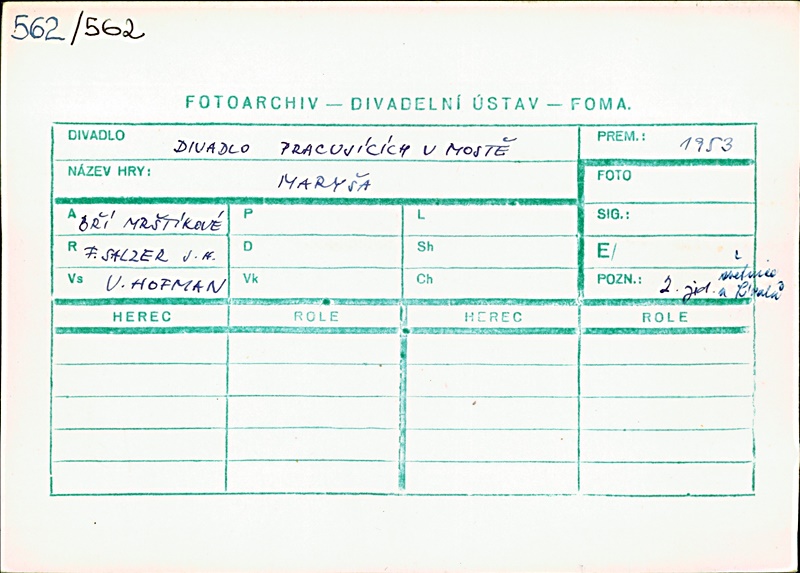 562/562
FOTOARCHIV — DIVADELNÍ ÚSTAV — FOMA.
DIVADLO DIVADLO PRACUJÍCÍCH V MOSTĚ PREM.: 1953
NÁZEV HRY: MARYŠA FOTO
A BŘÍ MRŠTÍKOVÉ P L SIG.:
R F. SALZER J. H. D Sh E/
Vs V. HOFMAN Vk Ch POZN.: 2. jed. světnice
u
HEREC ROLE HEREC ROLE